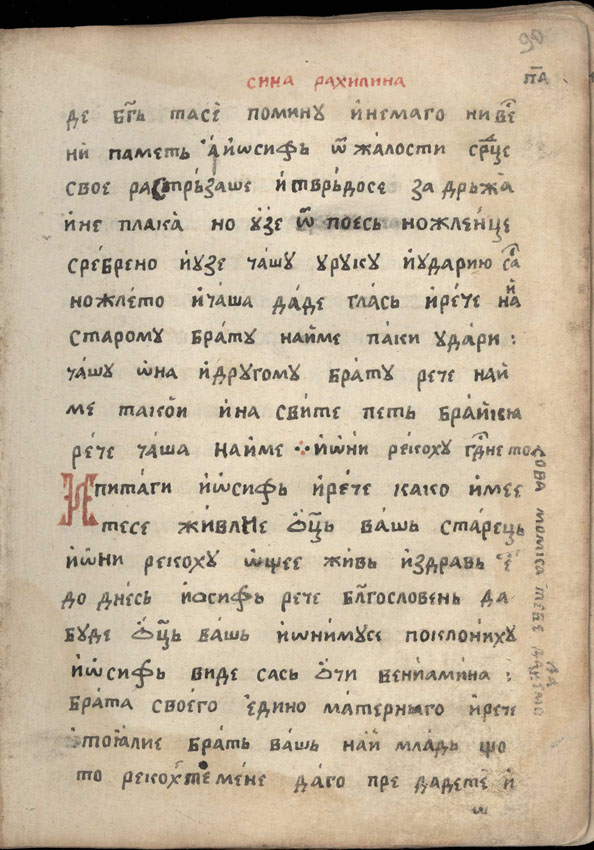 90
сина рахилина
п҃а
де бг҃ь тасе помину и немаго ни в͠е
ни паметь а иѡсифь ѿ жалости ср҃це
свое растрьзаше и тврьдосе за дрьжа
и не плака но узе ѿ поесь ножленце
сребрено и узе чашу у руку и удари ю са
ножлето и чаша даде глась и рече на
старому брату найме паки удари :
чашу ѡна и другому брату рече най
ме такои и на свите петь
рече чаша найме ⁘ и ѡни рекоху гд҃не то
Ипитаги иѡсифь и рече како имее
тесе живлие ѻц҃ь вашь старець
и ѡни рекоху ѡщее живь и здравь е
до днесь иосифь рече блг҃ословень да
буде ѻц҃ь вашь и ѡнимусе поклониху
иѡсифь виде сась ѻчи вениамина :
брата своего едино матернаго и рече
тоıалие брать вашь най младь що
то рекохте мене даго пре дадете и
ш
това момıса тебе дадемо
да